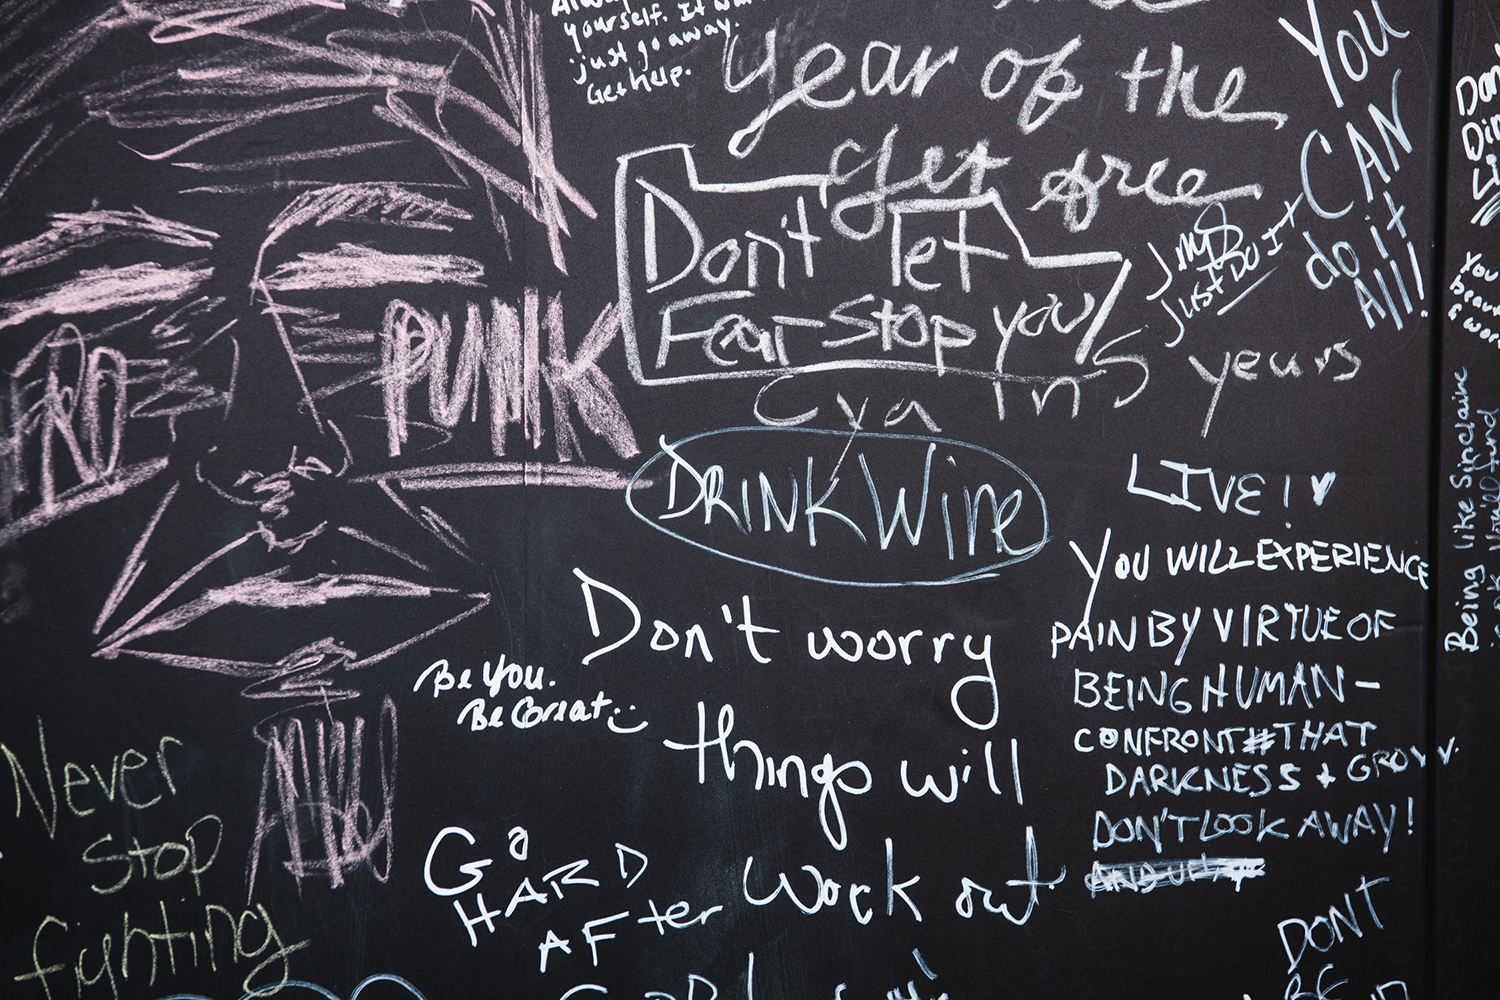 yourself. It
just go away.
Get help.
year of the
get free
Don't let
Fear stop you
Cya in 5 years
YOU
CAN
do it
All!
JUST DO IT
DRINK WINE
LIVE! ♥
YOU WILL EXPERIENCE
PAIN BY VIRTUE OF
BEING HUMAN –
CONFRONT THAT
DARKNESS + GROW.
DON'T LOOK AWAY!
Don't worry
things will
work out
Be You.
Be Great
GO
HARD
AFTER
AFRO PUNK
Never
Stop
fighting
DONT
BE
You
Being like Sinclaire